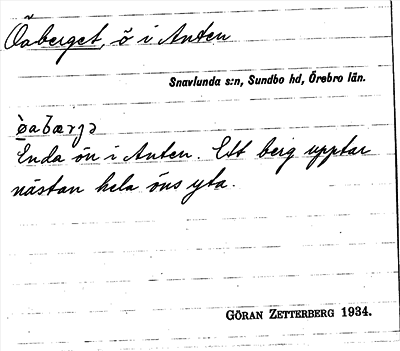 Öaberget, ö i Anten
Snavlunda s:n, Sundbo hd, Örebro län.
Enda ön i Anten. Ett berg upptar
nästan hela öns yta.
GÖRAN ZETTERBERG 1934.